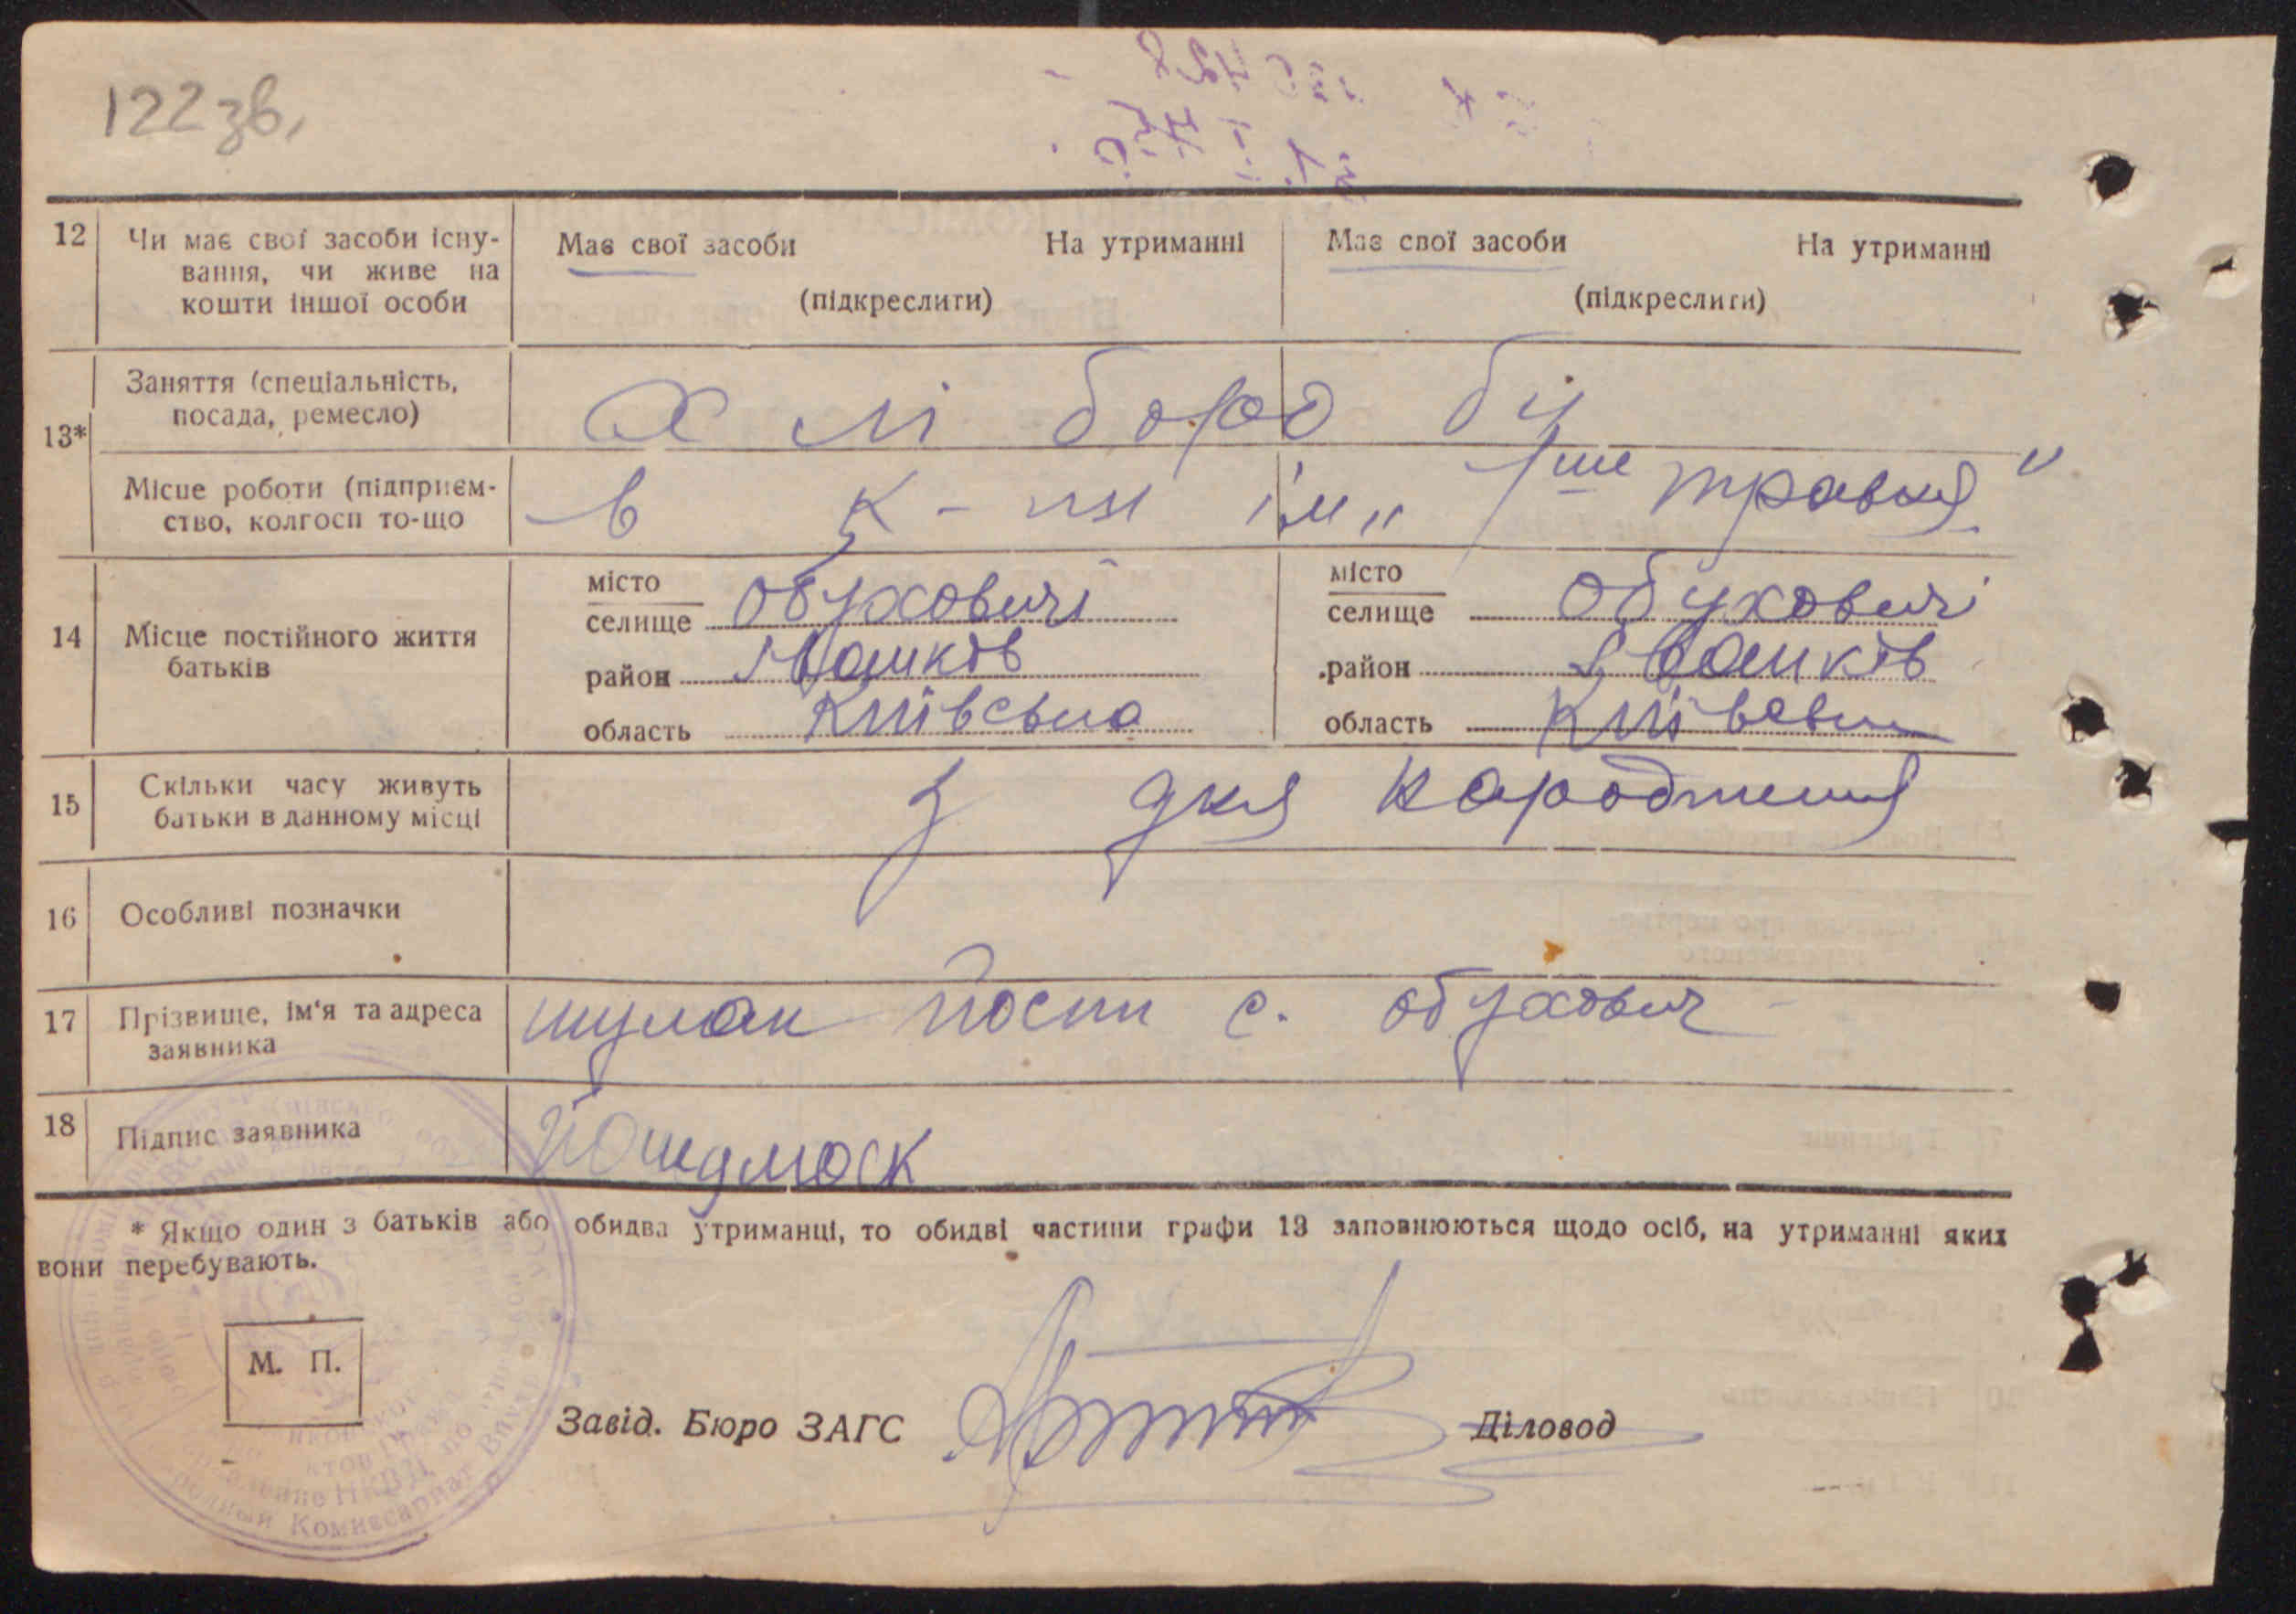 122 зв.
12 Чи має свої засоби існу-
вання, чи живе на
кошти іншої особи
Має свої засоби На утриманні
(підкреслити)
Має свої засоби На утриманні
(підкреслити)
13*
Заняття (спеціальність,
посада, ремесло)
Хліборобби
Місце роботи (підприєм-
ство, колгосп то-що
в к-пі ім „1ше травня"
14 Місце постійного життя
батьків
місто
селище Обуховичі
район Іванків
область Київська
місто
селище Обуховичі
район Іванків
область Київська
15 Скільки часу живуть
батьки в данному місці
з дня народження
16 Особливі позначки
17 Прізвище, ім'я та адреса
заявника
с. Обухович
18 Підпис заявника
* Якщо один з батьків або обидва утриманці, то обидві частини графи 13 заповнюються щодо осіб, на утриманні яких
вони перебувають.
М. П.
Завід. Бюро ЗАГС Діловод